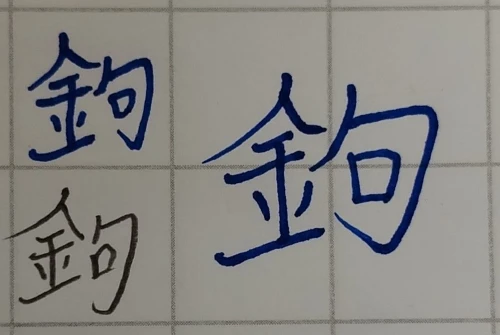 鉤 鉤
鉤